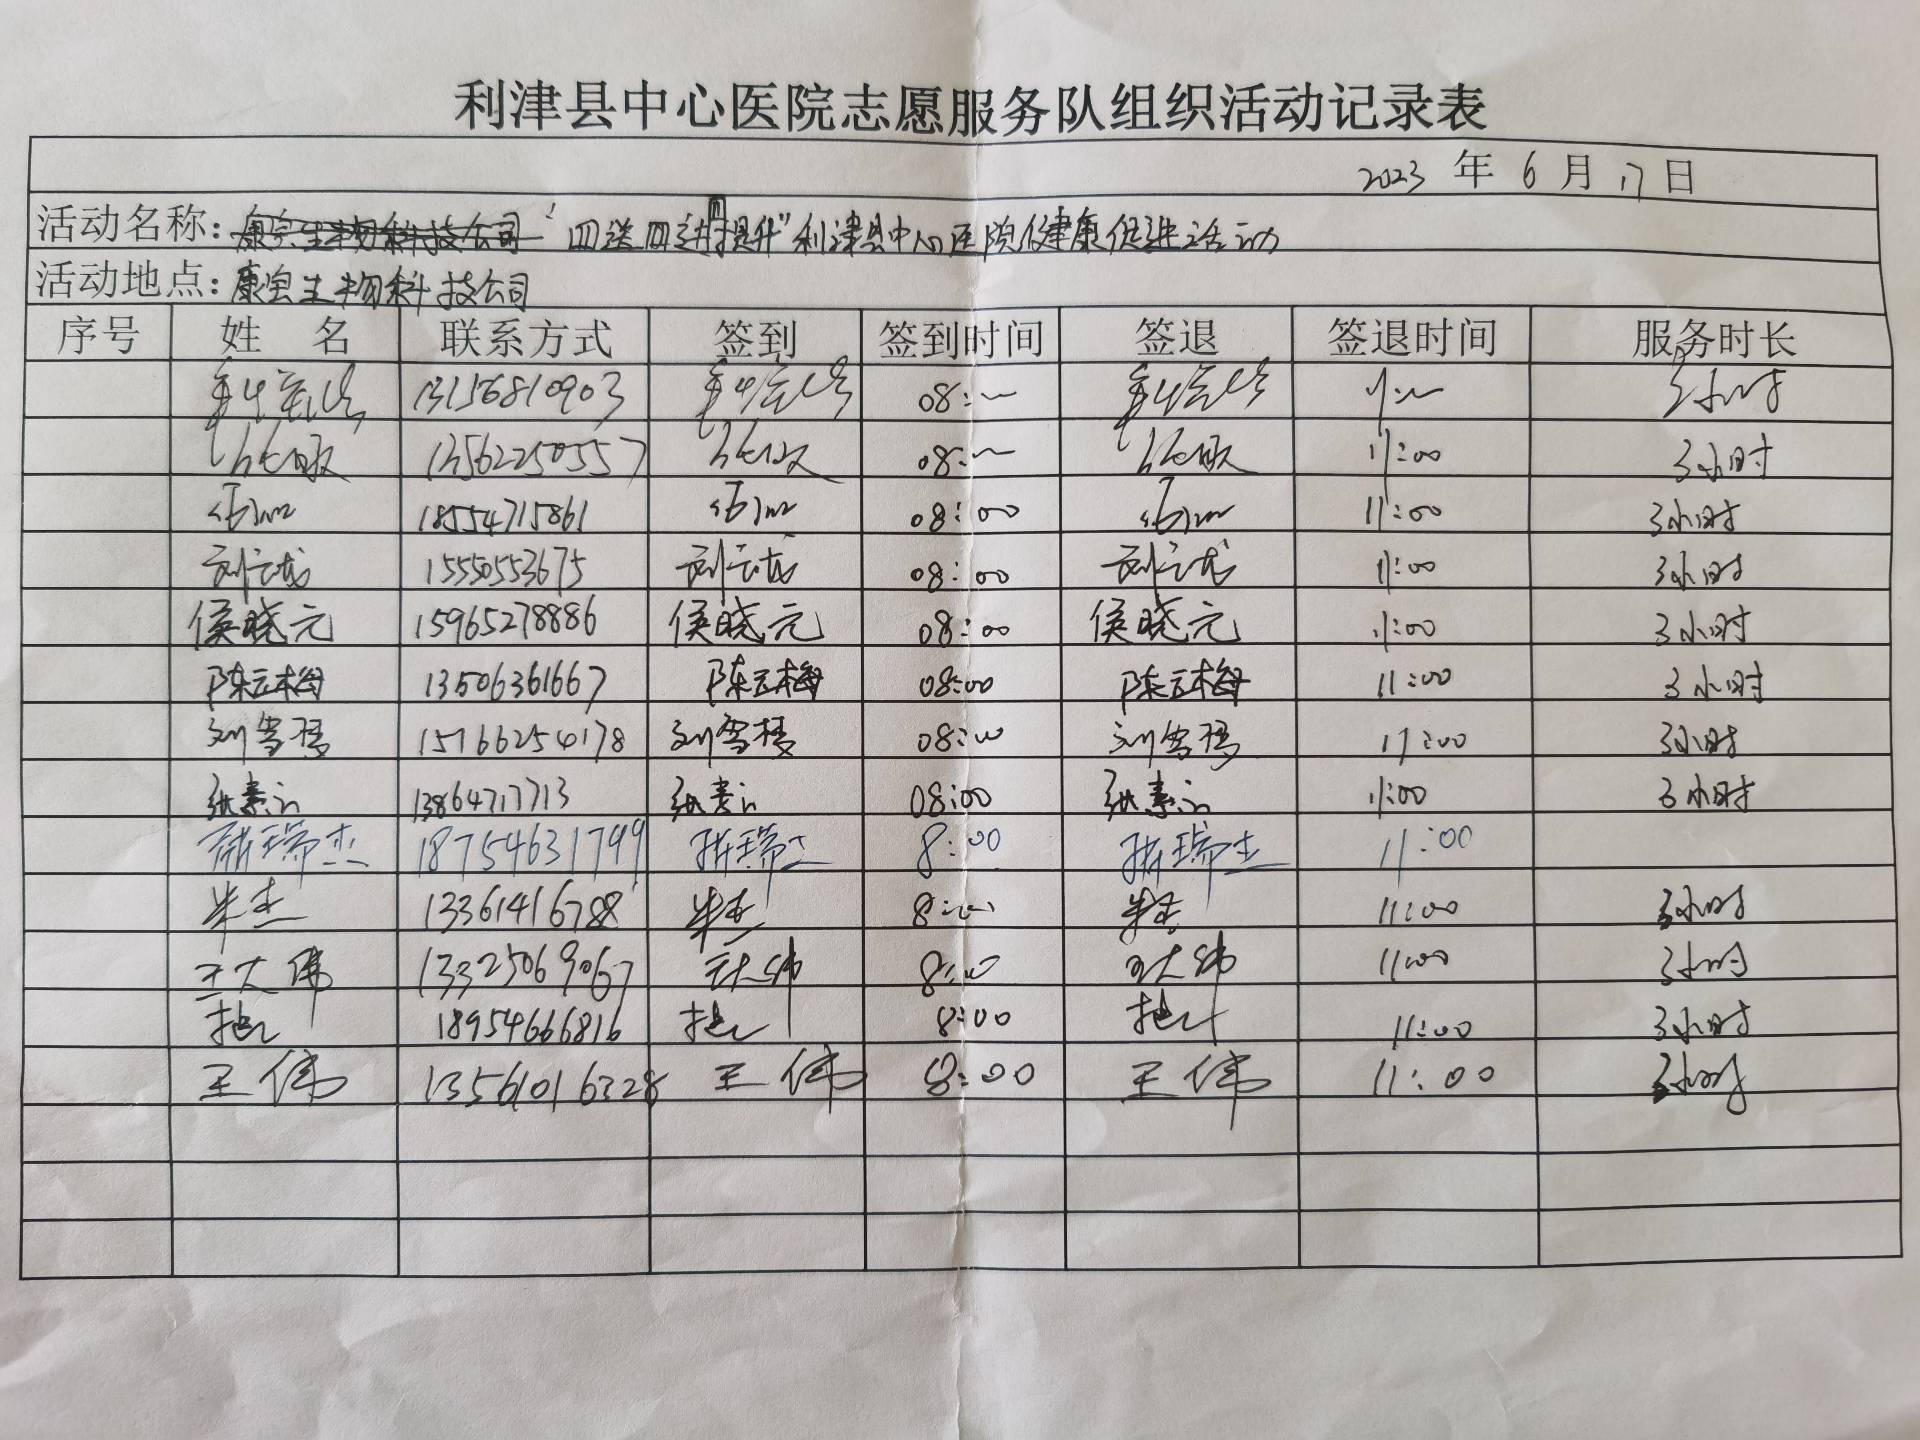 利津县中心医院志愿服务队组织活动记录表
2023 年 6 月 17 日
活动名称：康宝生物科技公司 “四送四进四提升”利津县中心医院健康促进活动
活动地点：康宝生物科技公司
序号 姓 名 联系方式 签到 签到时间 签退 签退时间 服务时长
13156810903 08:00 11:00 3小时
13562250557 08:00 11:00 3小时
18554715861 08:00 11:00 3小时
刘云龙 15550553675 刘云龙 08:00 刘云龙 11:00 3小时
侯晓元 15965278886 侯晓元 08:00 侯晓元 11:00 3小时
陈立梅 13506361667 陈立梅 08:00 陈立梅 11:00 3小时
刘雪 15166254178 刘雪 08:00 刘雪 11:00 3小时
张素 13864717713 张素 08:00 张素 11:00 3小时
瑞杰 18754631799 瑞杰 8:00 瑞杰 11:00
牟杰 13361416788 牟杰 8:00 牟杰 11:00 3小时
王大伟 13325069067 王大伟 8:00 王大伟 11:00 3小时
18954666816 8:00 11:00 3小时
王伟 13561016328 王伟 8:00 王伟 11:00 3小时